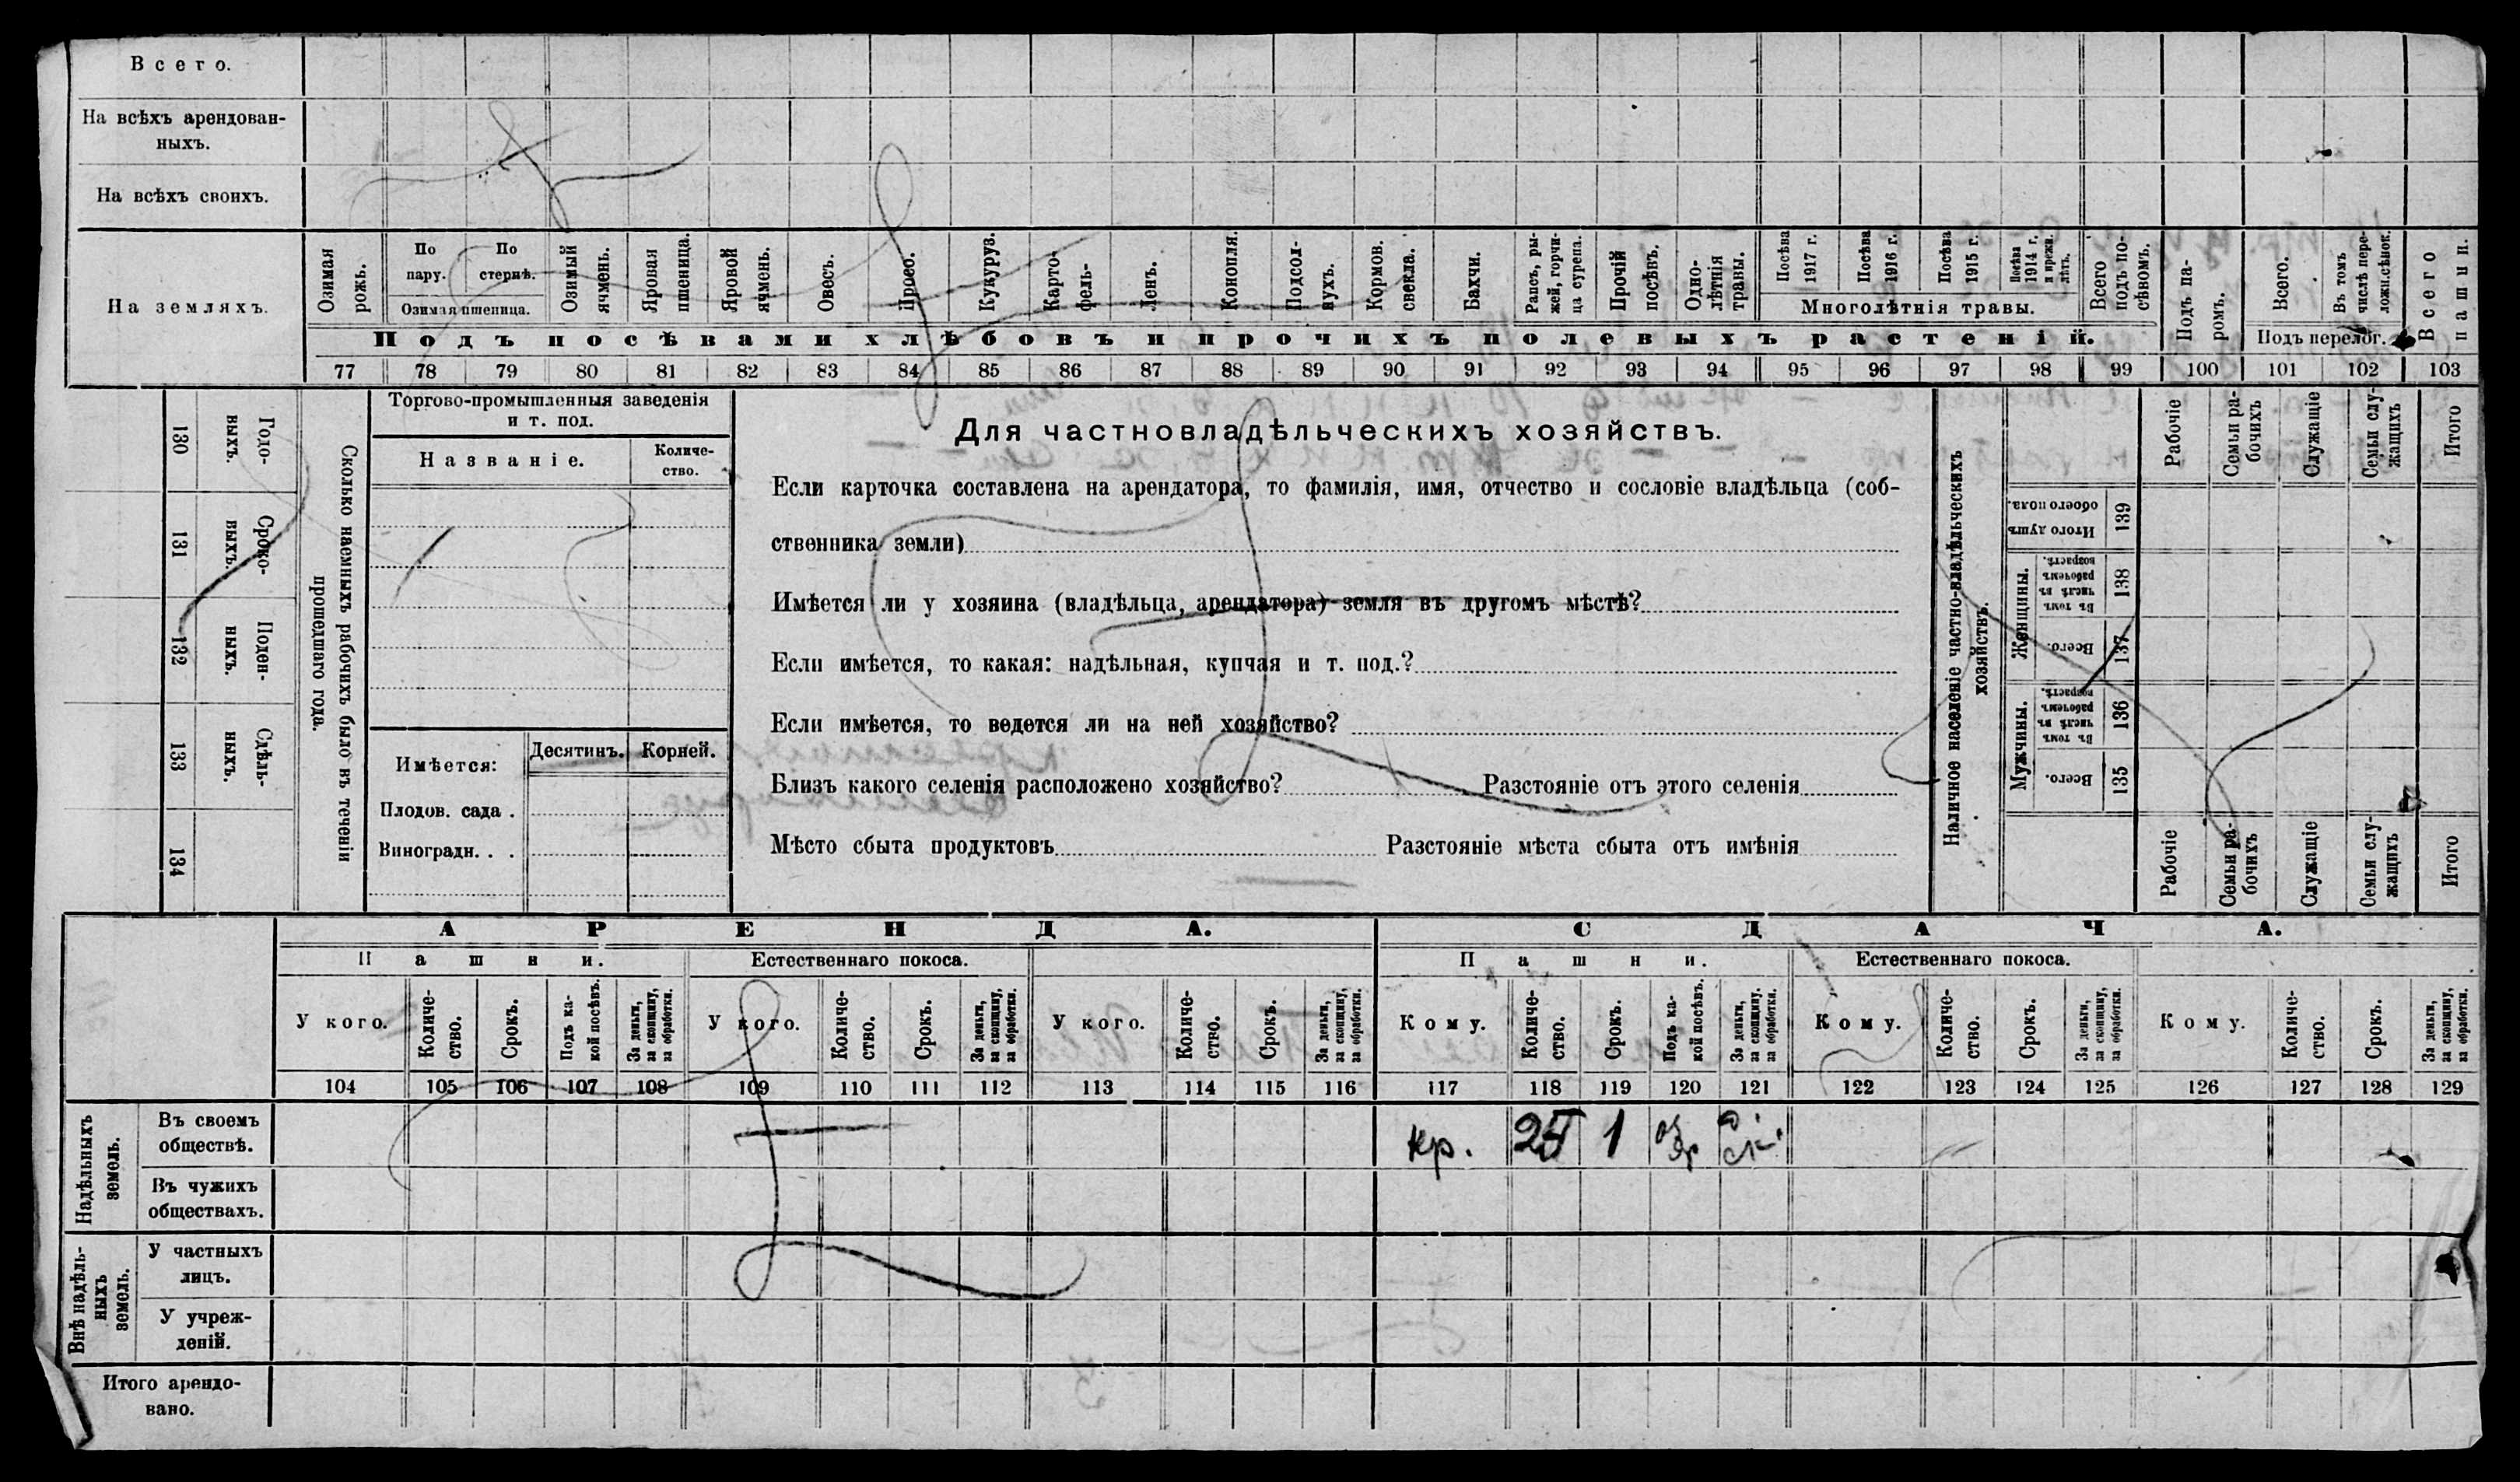 Всего.
На всѣхъ арендован-
ныхъ.
На всѣхъ своихъ.
На земляхъ.
Озимая рожь.
По пару.
По стернѣ.
Озимая пшеница.
Озимый ячмень.
Яровая пшеница.
Яровой ячмень.
Овесъ.
Просо.
Кукуруз.
Карто-
фель-
Ленъ.
Конопля.
Подсол-
нухъ.
Кормов.
свекла.
Бахчи.
Рапсъ, ры-
жей, горчи-
ца сурепа.
Прочій
посѣвъ.
Одно-
лѣтнія
травы.
Посѣва
1917 г.
Посѣва
1916 г.
Посѣва
1915 г.
Посѣва
1914 г.
и прежн.
лѣтъ.
Многолѣтнія травы.
Всего
подъ по-
сѣвомъ.
Подъ посѣвами хлѣбовъ и прочихъ полевыхъ растеній.
Подъ па-
ромъ.
Всего.
Въ томъ
числѣ пере-
ложн.сѣнок.
Подъ перелог.
Всего
пашни.
77 78 79 80 81 82 83 84 85 86 87 88 89 90 91 92 93 94 95 96 97 98 99 100 101 102 103
130 Годо-
выхъ.
131 Сроко-
выхъ.
132 Поден-
ныхъ.
133 Сдѣль-
ныхъ.
134
Сколько наемныхъ рабочихъ было въ теченіи
прошедшаго года.
Торгово-промышленныя заведенія
и т. под.
Названіе.
Количе-
ство.
Имѣется:
Десятинъ.
Корней.
Плодов. сада .
Виноградн. . .
Для частновладѣльческихъ хозяйствъ.
Если карточка составлена на арендатора, то фамилія, имя, отчество и сословіе владѣльца (соб-
ственника земли)
Имѣется ли у хозяина (владѣльца, арендатора) земля въ другомъ мѣстѣ?
Если имѣется, то какая: надѣльная, купчая и т. под.?
Если имѣется, то ведется ли на ней хозяйство?
Близъ какого селенія расположено хозяйство? Разстояніе отъ этого селенія
Мѣсто сбыта продуктовъ Разстояніе мѣста сбыта отъ имѣнія
Наличное населеніе частно-владѣльческихъ
хозяйствъ.
Рабочіе
Семьи ра-
бочихъ
Служащіе
Семьи слу-
жащихъ
Итого
Итого душъ
обоего пола.
139
Женщины.
Въ томъ
числѣ въ
рабочемъ
возрастѣ.
138
Всего.
137
Мужчины.
Въ томъ
числѣ въ
рабочемъ
возрастѣ.
136
Всего.
135
Рабочіе
Семьи ра-
бочихъ
Служащіе
Семьи слу-
жащихъ
Итого
АРЕНДА.
СДАЧА.
Пашни.
Естественнаго покоса.
Пашни.
Естественнаго покоса.
У кого.
Количе-
ство.
Срокъ.
Подъ ка-
кой посѣвъ.
За деньги,
за скопщину,
за обработки.
У кого.
Количе-
ство.
Срокъ.
За деньги,
за скопщину,
за обработки.
У кого.
Количе-
ство.
Срокъ.
За деньги,
за скопщину,
за обработки.
Кому.
Количе-
ство.
Срокъ.
Подъ ка-
кой посѣвъ.
За деньги,
за скопщину.
за обработки.
Кому.
Количе-
ство.
Срокъ.
За деньги,
за скопщину,
за обработки.
Кому.
Количе-
ство.
Срокъ.
За деньги,
за скопщину,
за обработки.
104 105 106 107 108 109 110 111 112 113 114 115 116 117 118 119 120 121 122 123 124 125 126 127 128 129
Надѣльныхъ
земель.
Въ своемъ
обществѣ.
кр. 25 1
Въ чужихъ
обществахъ.
Внѣ надѣль-
ныхъ
земель.
У частныхъ
лицъ.
У учреж-
деній.
Итого арендо-
вано.